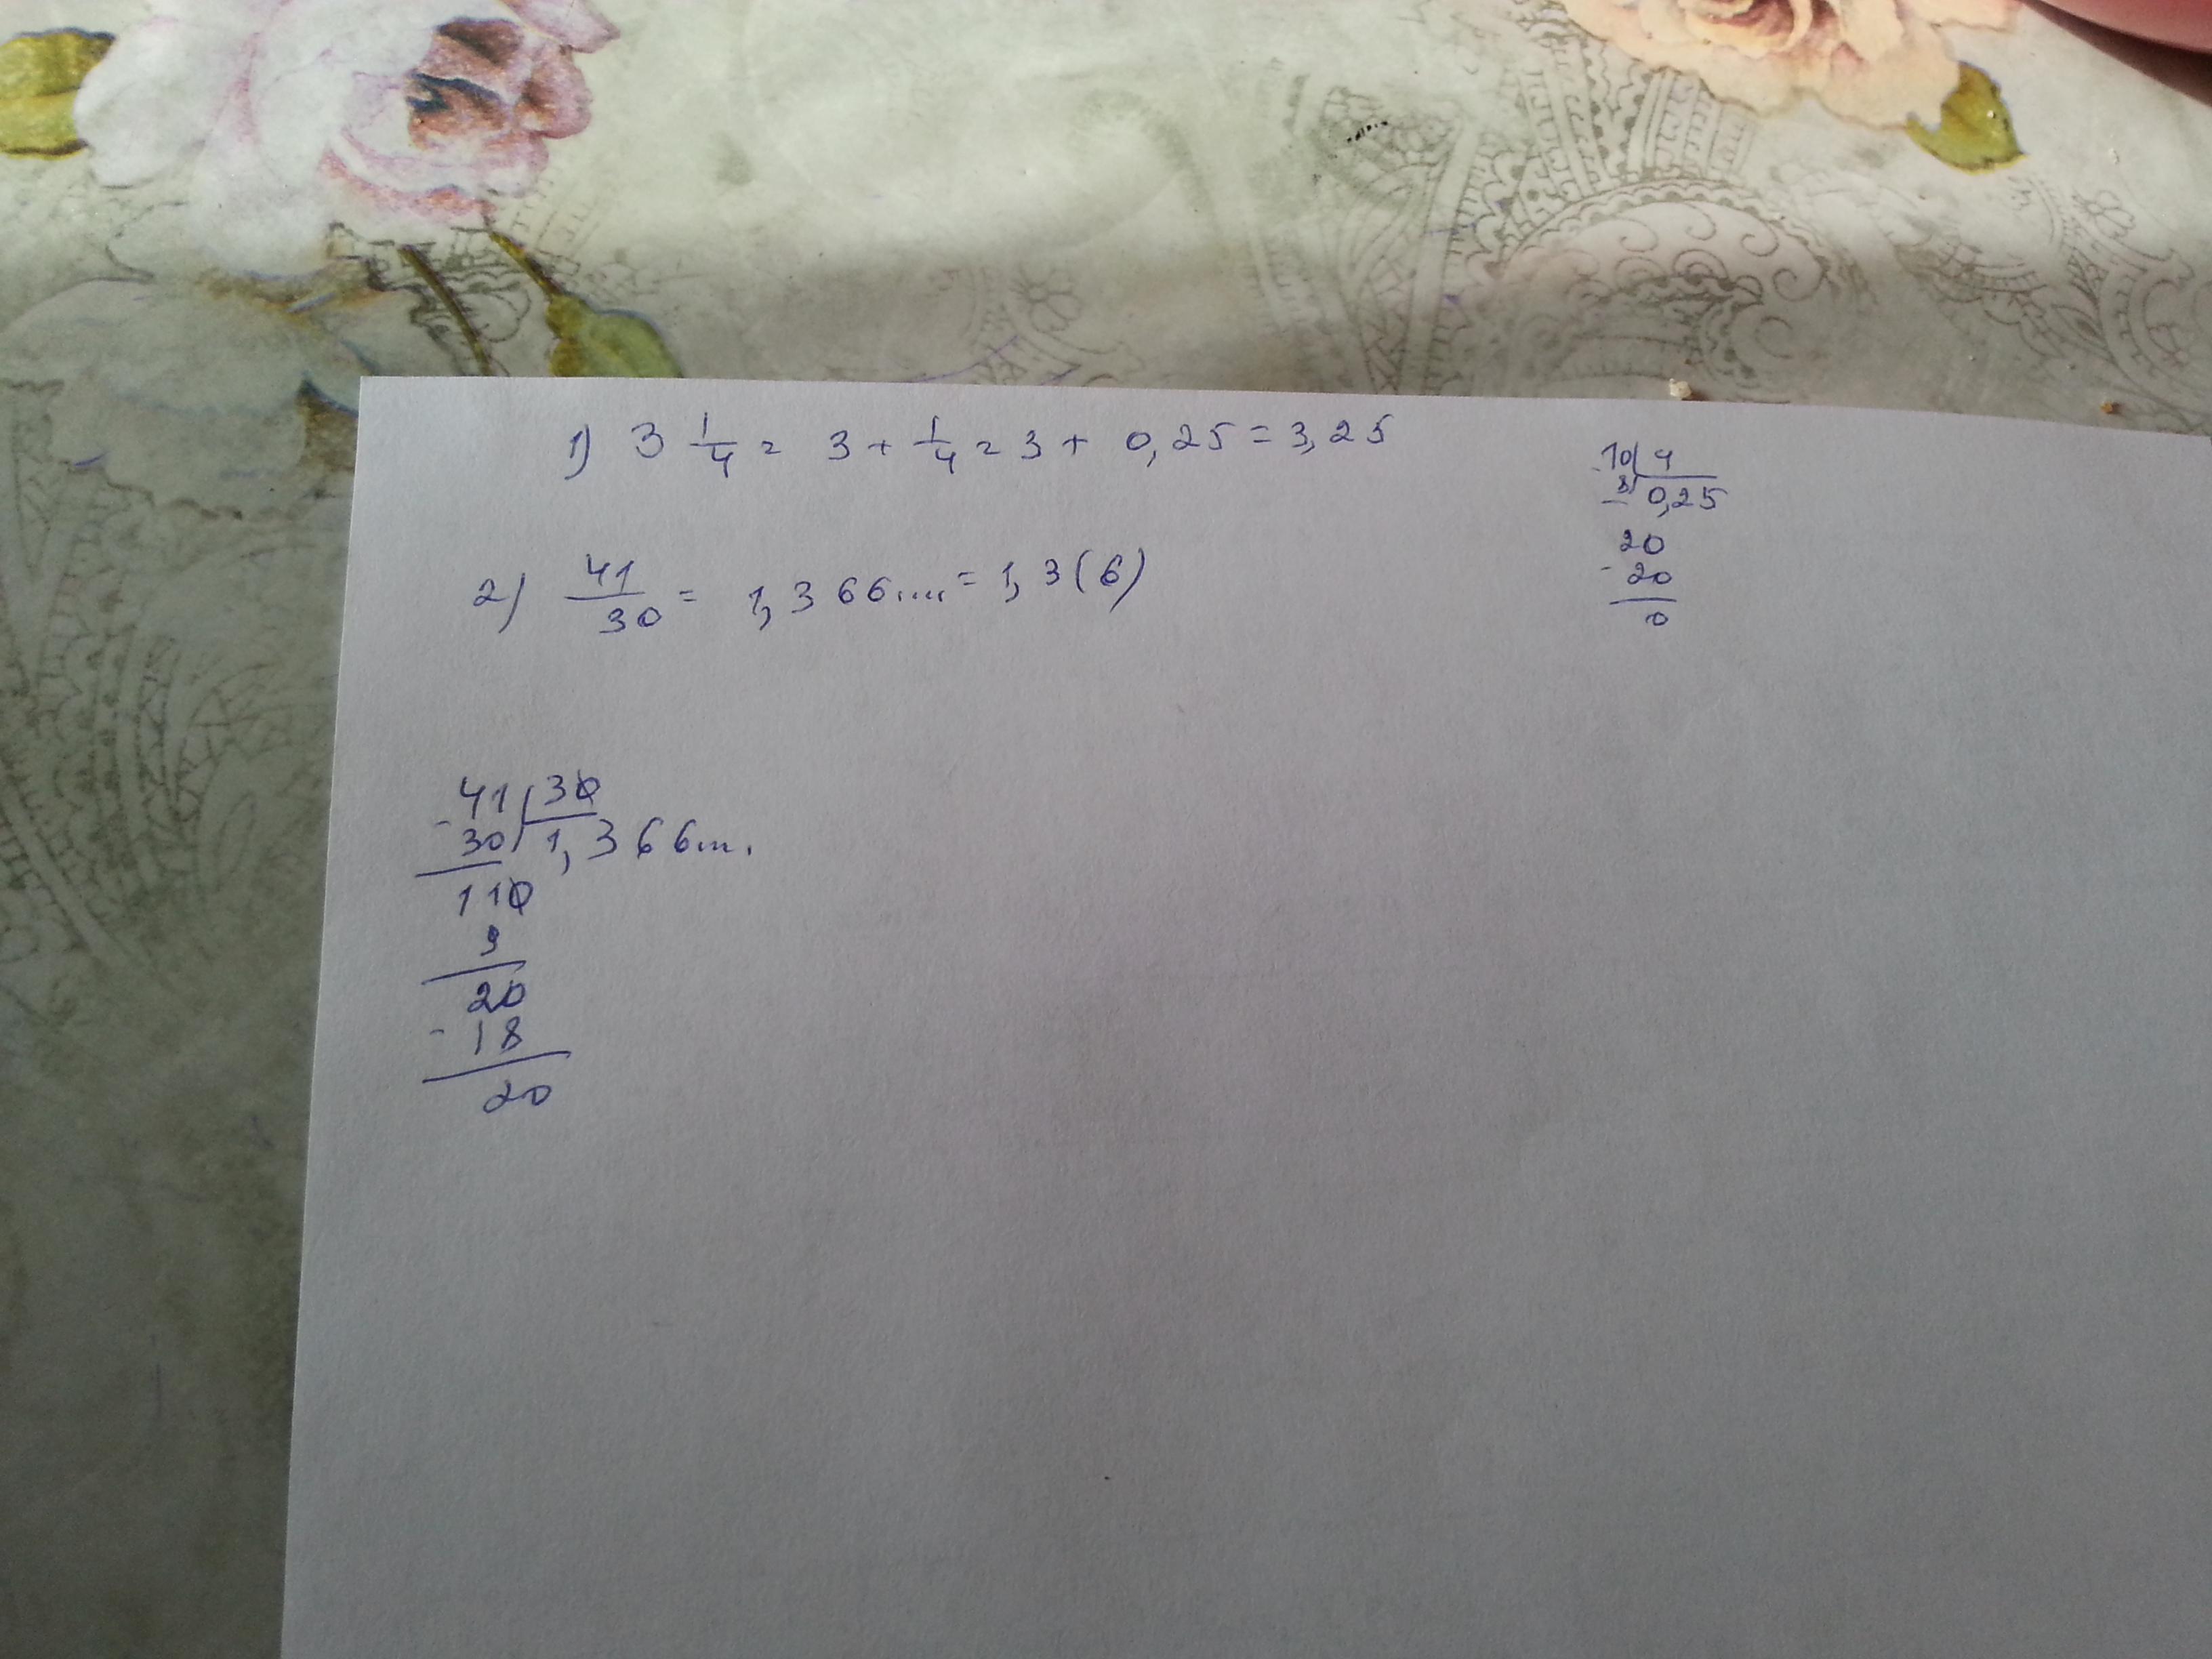 1) 3 1/4 = 3 + 1/4 = 3 + 0,25 = 3,25
-10 | 4
8 | 0,25
20
- 20
0
2) 41/30 = 1,366.... = 1,3(6)
- 41 | 30
30 | 1,366....
110
9
20
- 18
20